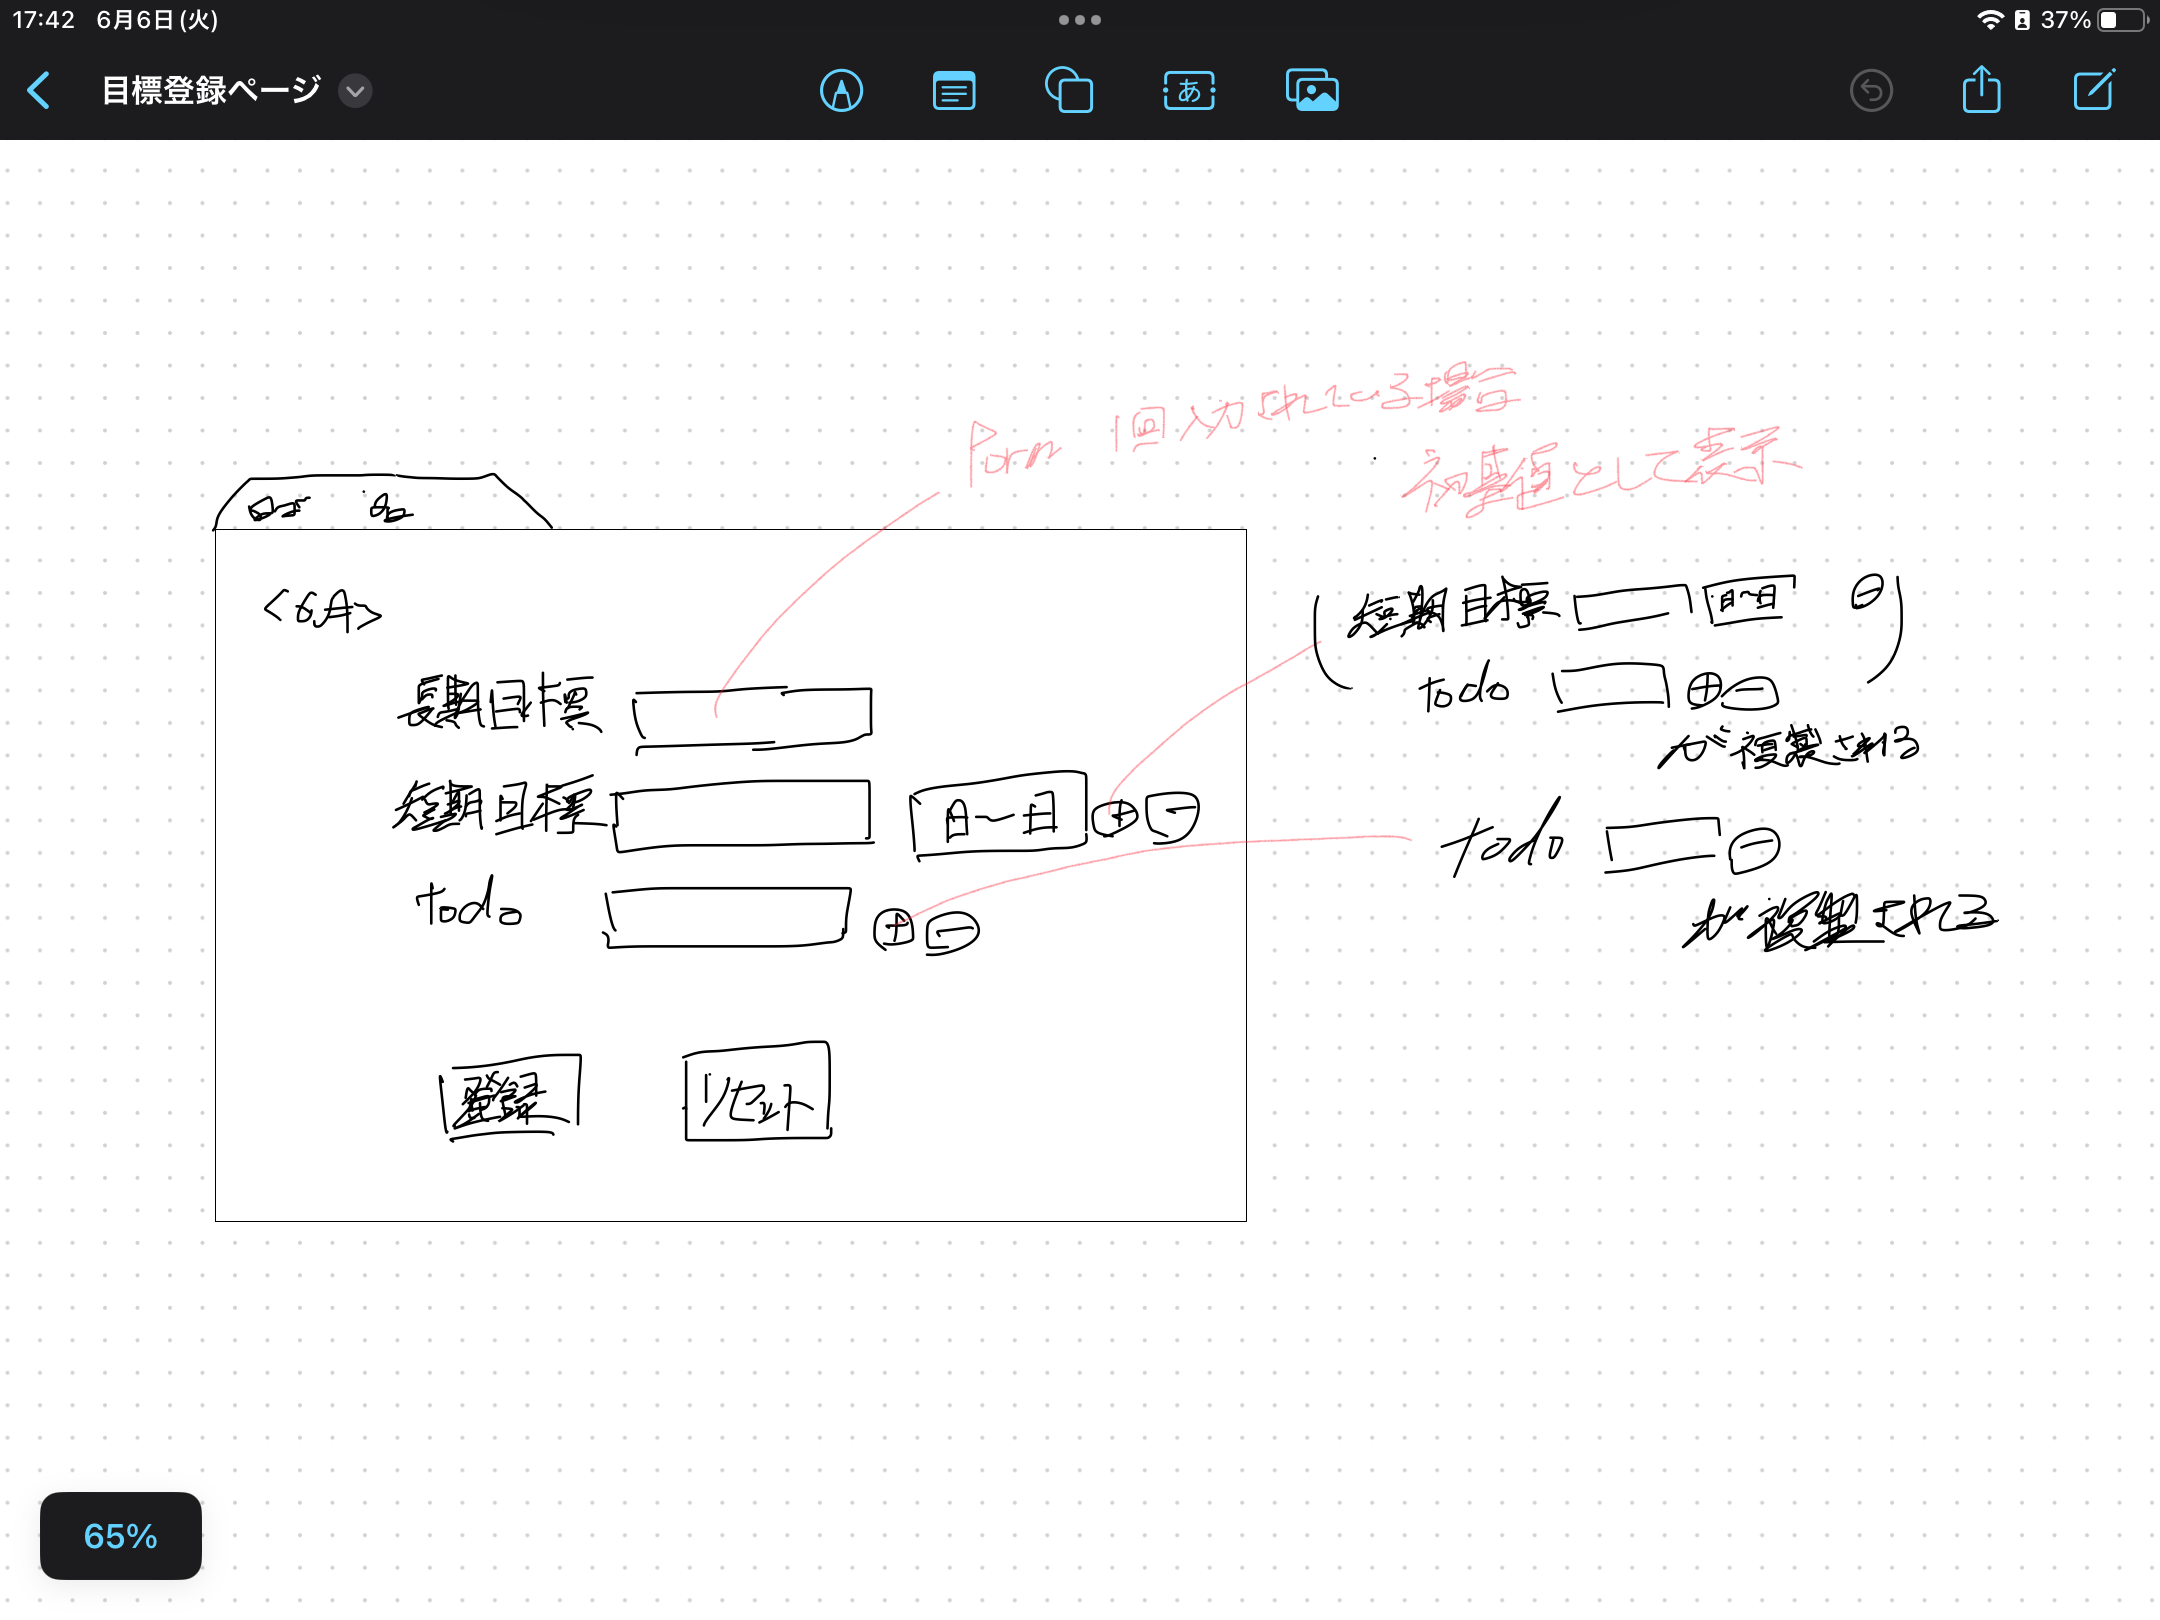 17:42 6月6日(火)
37%
目標登録ページ
あ
Form 1回入力されている場合
初期値として表示
<6月>
長期目標
短期目標 日〜日 + -
todo + -
登録 リセット
(短期目標 日〜日 -)
todo + -
が複製される
todo -
が複製される
65%